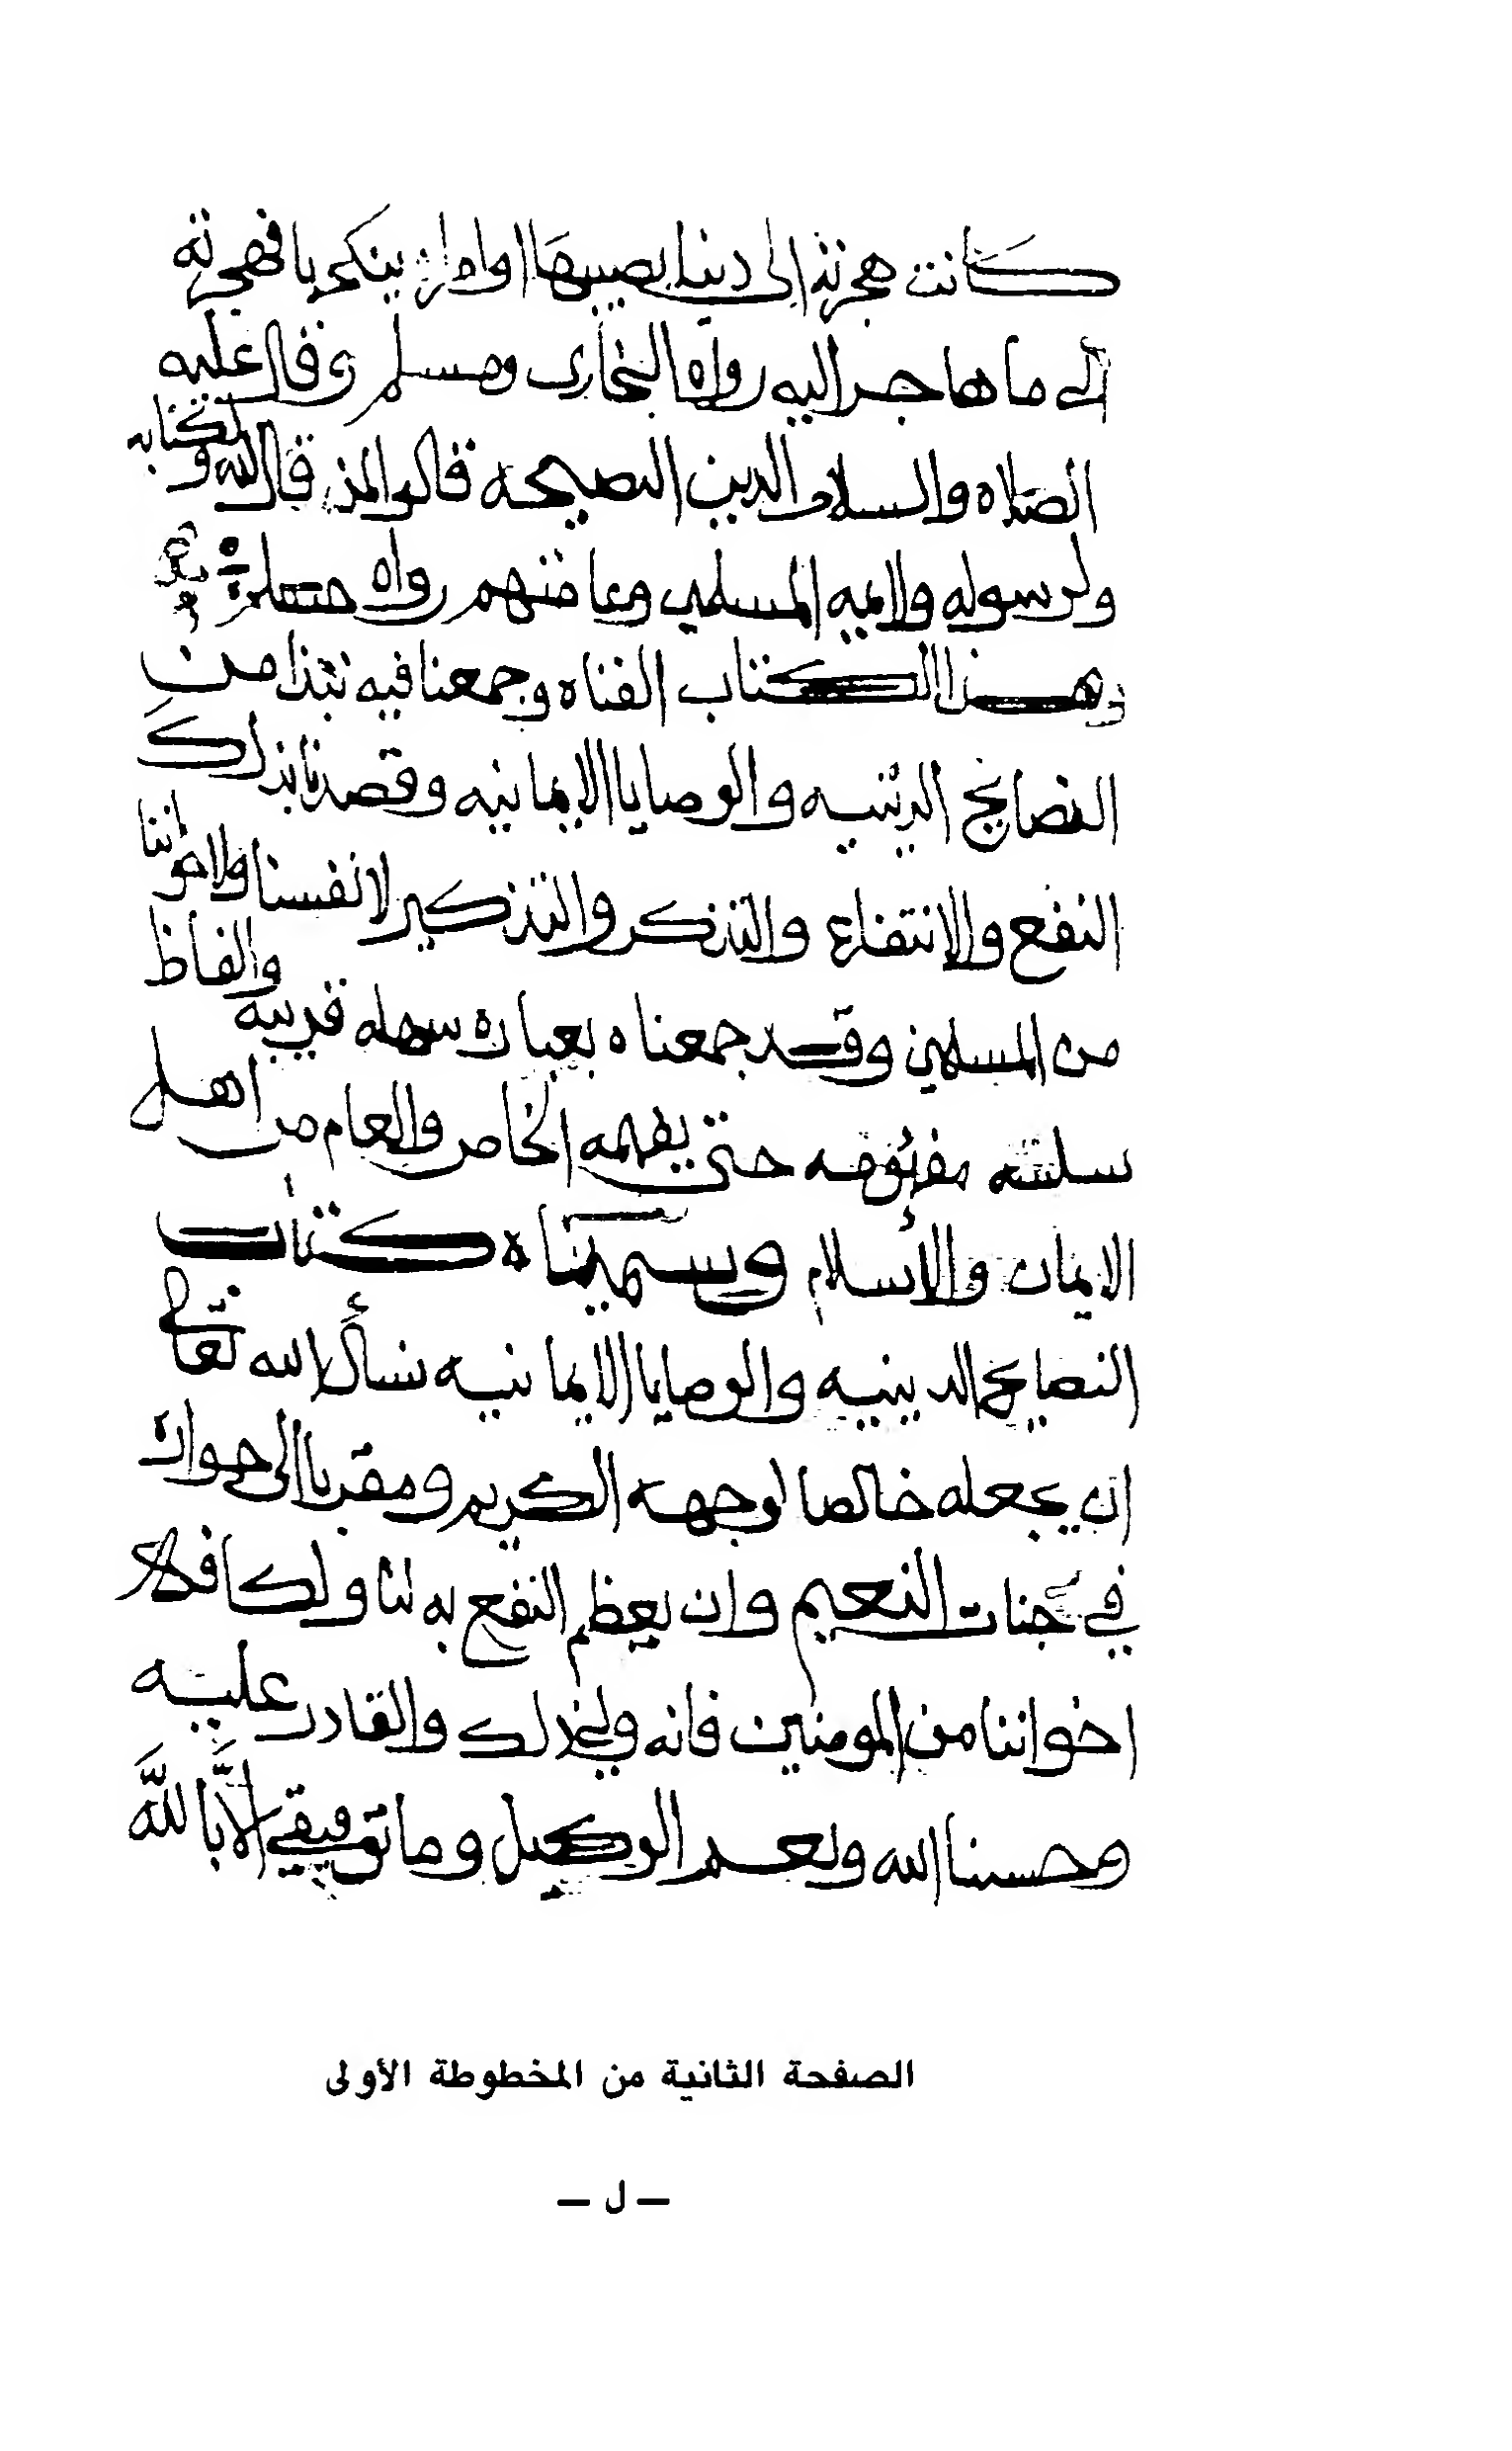 كانت هجرته الى دنيا يصيبها او امراة ينكحها فهجرته
الى ما هاجر اليه رواه البخارى ومسلم وقال عليه
الصلاه والسلام الدين النصيحه قالوا لمن قال لله ولكتابه
ولرسوله ولايمه المسلمين وعامتهم رواه مسلم
وهذا الكتاب الفناه وجمعنا فيه نبذا من
النصايح الدينيه والوصايا الايمانيه وقصدنا بذلك
النفع والانتفاع والتذكر والتذكير لانفسنا ولاخواننا
من المسلمين وقد جمعناه بعباره سهله قريبه والفاظ
سلسه حتى يفهمه الخاص والعام من اهل
الايمان والاسلام وسميناه كتاب
النصايح الدينيه والوصايا الايمانيه نسأل الله تعالى
ان يجعله خالصا لوجهه الكريم ومقربا الى جواره
في جنات النعيم وان يعظم النفع به لنا ولكافه
اخواننا من المومنين فانه ولي ذلك والقادر عليه
وحسبنا الله ونعم الوكيل وما توفيقي الا بالله
الصفحة الثانية من المخطوطة الأولى
— ل —